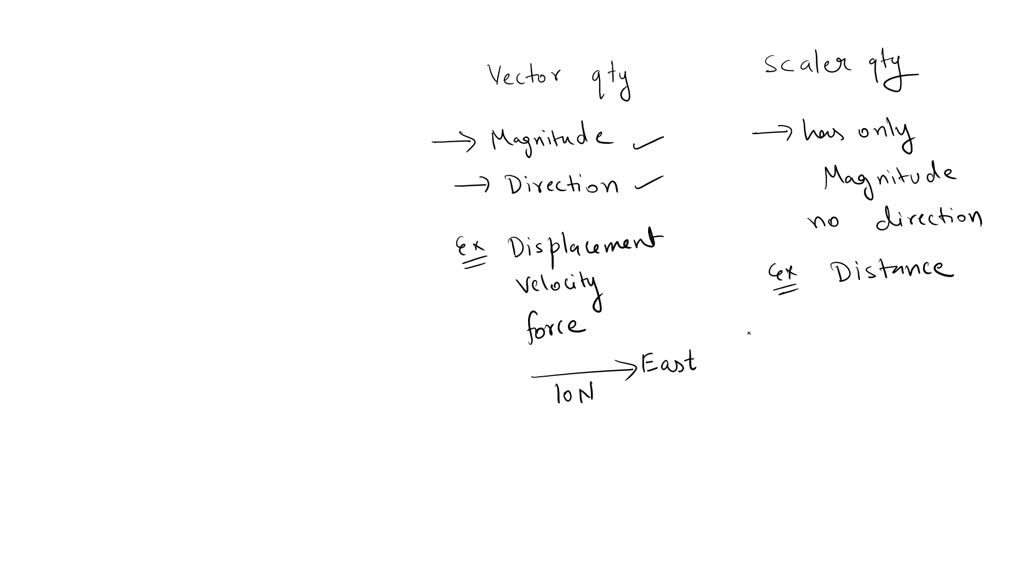 Vector qty
→ Magnitude ✓
→ Direction ✓
Ex Displacement
velocity
force
East
10N
scaler qty
→ has only
Magnitude
no direction
Ex Distance